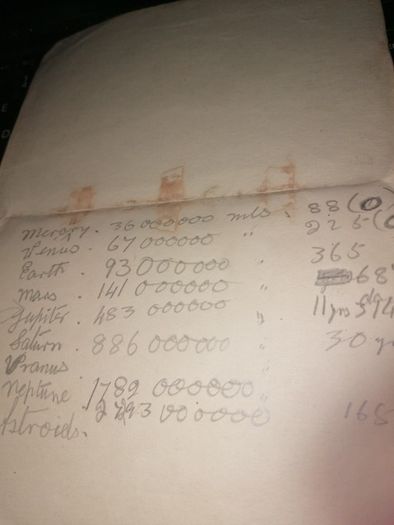 Mercury . 36000000 mls . 88 (0)
Venus . 67 000000 " 225 (
Earth . 93000000 " 365
Mars . 141 000000 " 68
Jupiter . 483 000000 " 11 yrs
Saturn . 886 000000 " 30 y
Uranus "
Neptune 1782 000000 "
2793 000000 165
Astroids.